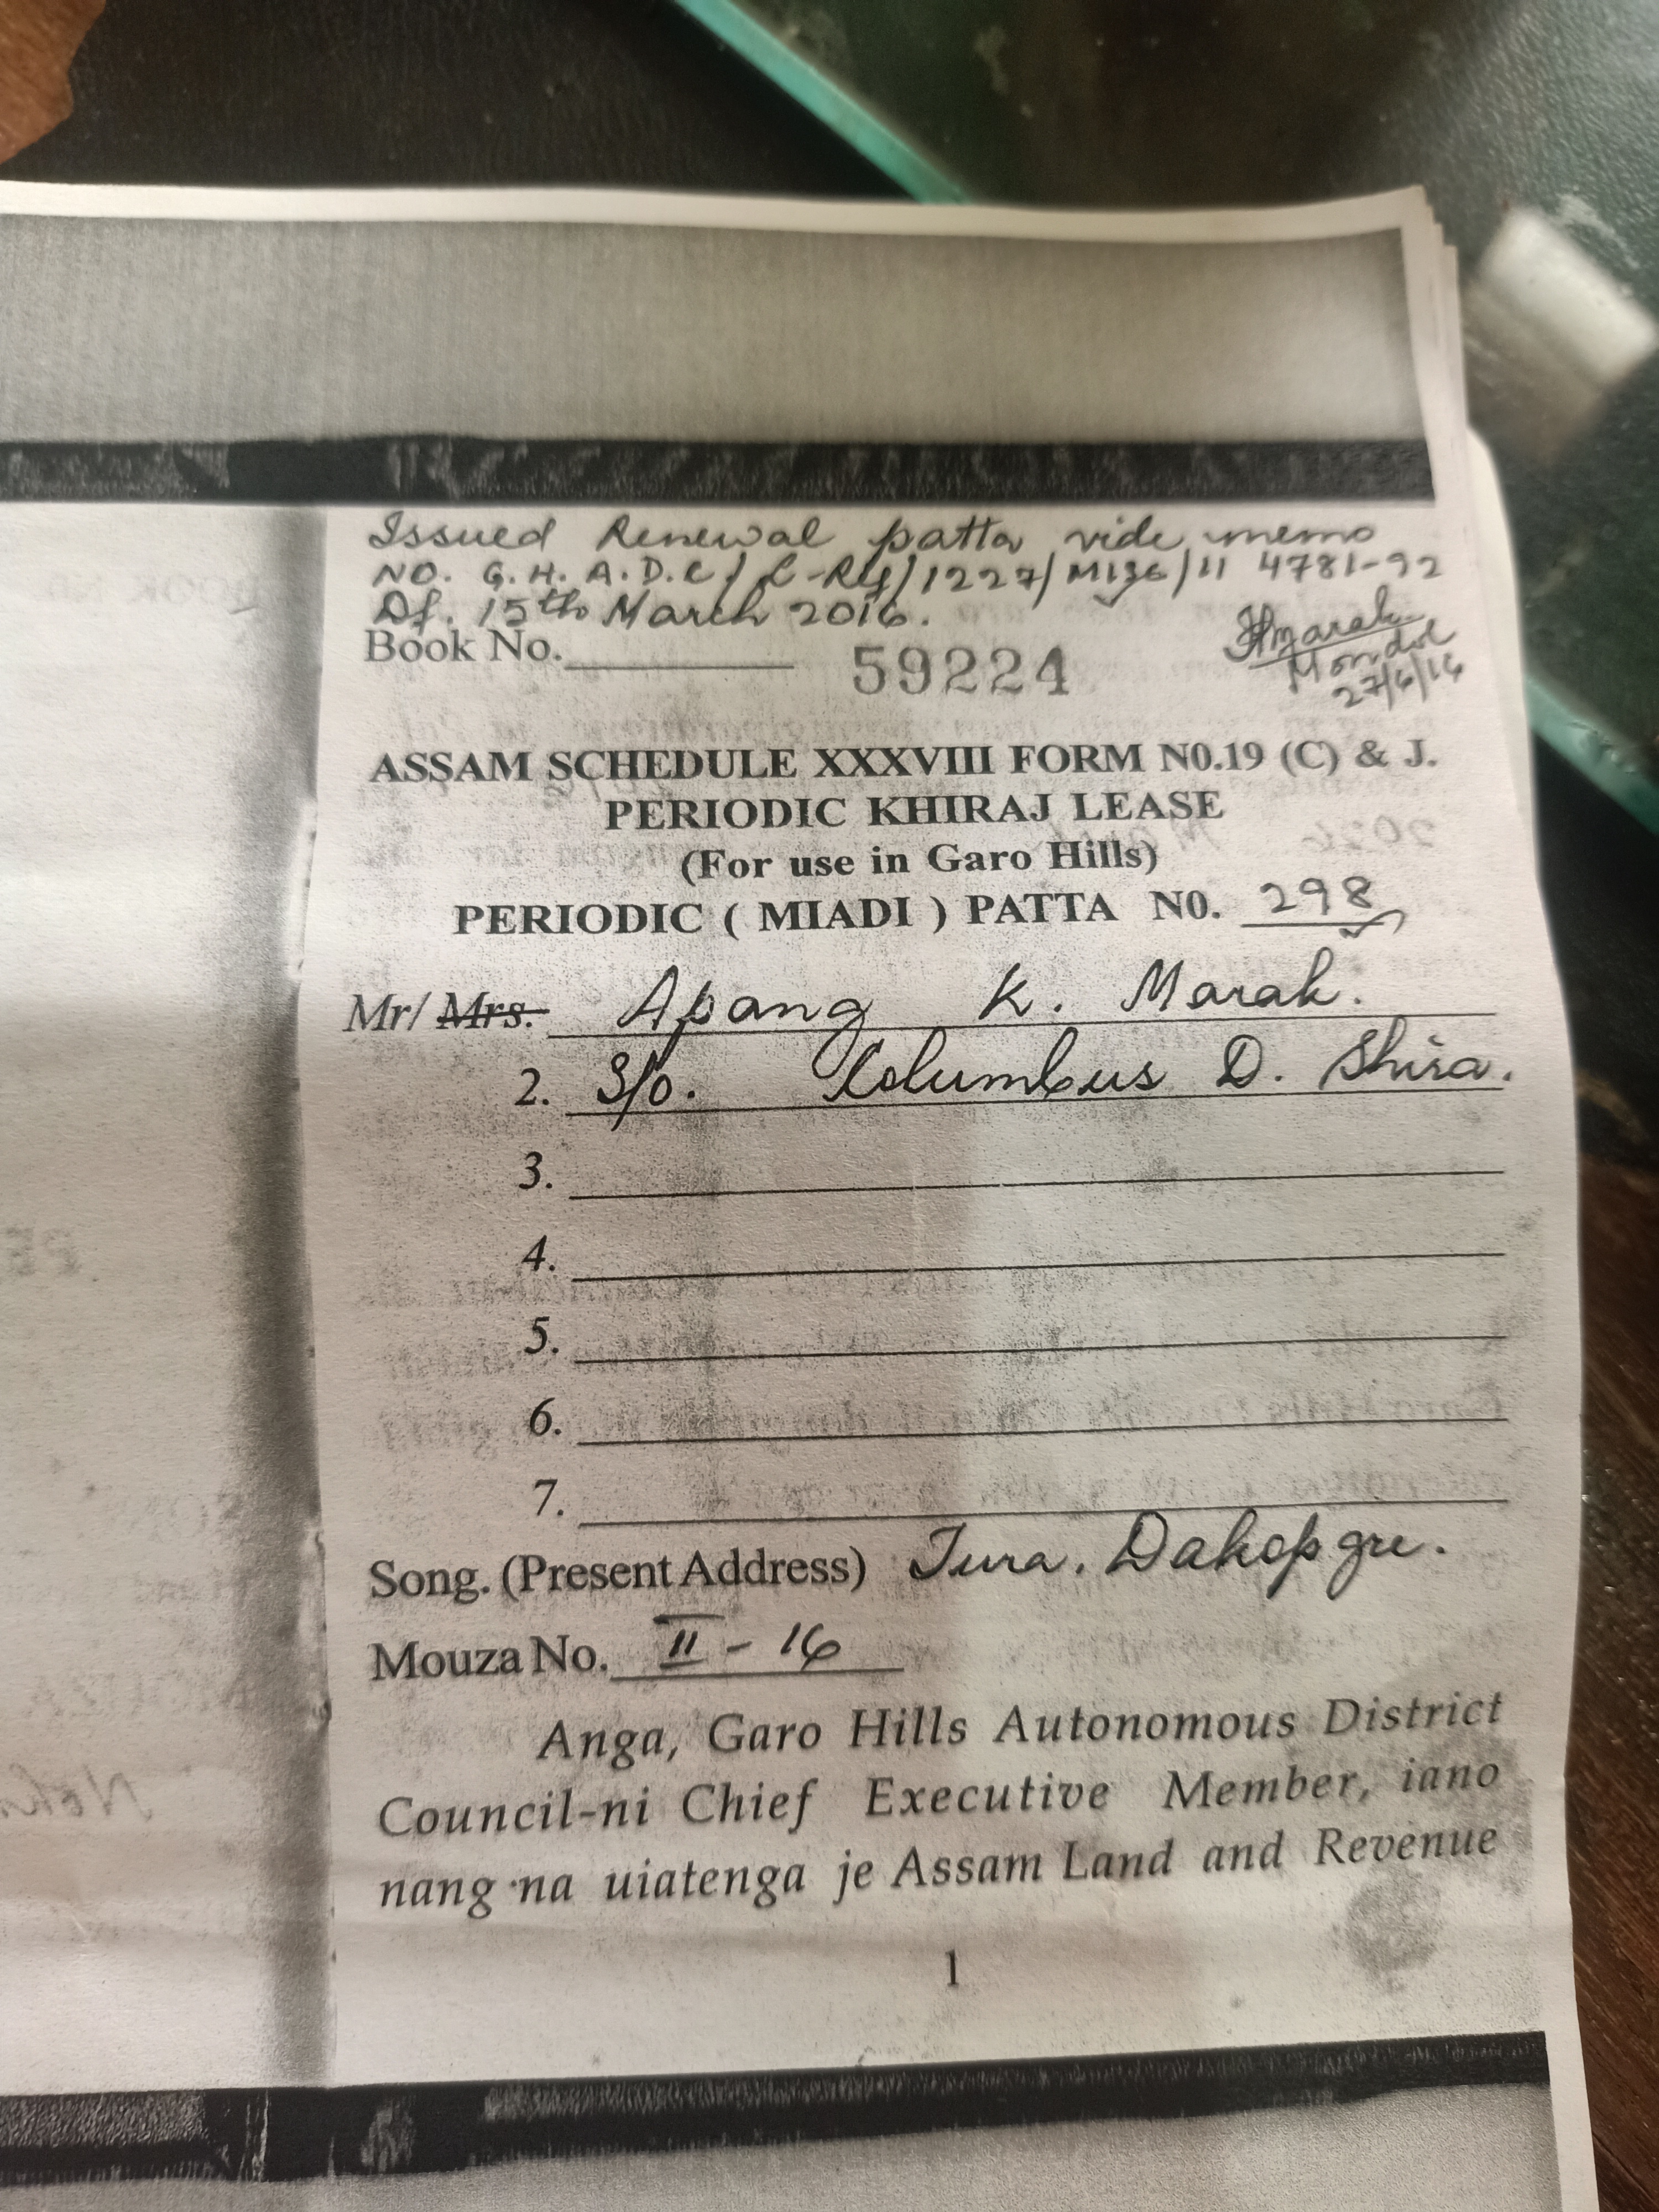 Issued Renewal patta vide memo
NO. G.H.A.D.C/ /1227/ /11 4781-92
Dt. 15th March 2016.
Book No. 59224
Marak
Mondol
27/6/16
ASSAM SCHEDULE XXXVIII FORM N0.19 (C) & J.
PERIODIC KHIRAJ LEASE
(For use in Garo Hills)
PERIODIC ( MIADI ) PATTA N0. 298
Mr/ Mrs. Apang K. Marak.
2. S/o. Kolumbus D. Shira.
3.
4.
5.
6.
7.
Song. (Present Address) Tura. Dakopgre.
Mouza No. II - 16
Anga, Garo Hills Autonomous District
Council-ni Chief Executive Member, iano
nang·na uiatenga je Assam Land and Revenue
1